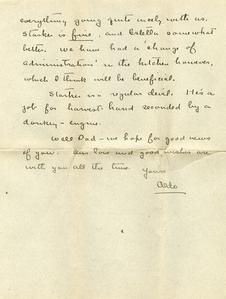 everything going quite nicely with us.
Starke is fine, and Estella somewhat
better. We have had a 'change of
administration' in the kitchen however,
which I think will be beneficial.
Starke is a regular devil. He's a
job for harvest hand seconded by a
donkey-engine.
Well Dad - we hope for good news
of you. Our love and good wishes are
with you all the time.
Yours